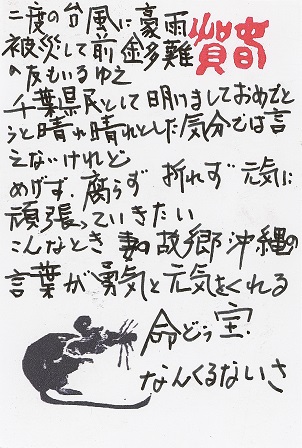 賀春
二度の台風に豪雨
被災して前途多難
の友もいるゆえ
千葉県民として明けましておめでと
うと晴れ晴れとした気分では言
えないけれど
めげず 腐らず 折れず 元気に
頑張っていきたい
こんなとき 妻の故郷沖縄の
言葉が勇気と元気をくれる
命どぅ宝
なんくるないさ